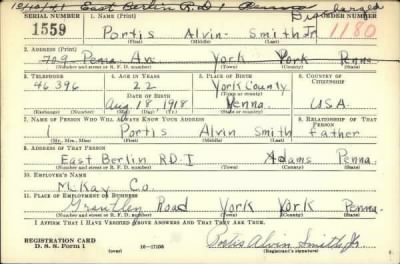 10/40/41 East Berlin R.D. 1 Penna Discharged
SERIAL NUMBER 1. NAME (Print) ORDER NUMBER
1559 Portis Alvin Smith Jr. 1180
(First) (Middle) (Last)
2. ADDRESS (Print)
709 Penn Av. York York Penna.
(Number and street or R. F. D. number) (Town) (County) (State)
3. TELEPHONE 4. AGE IN YEARS 5. PLACE OF BIRTH 6. COUNTRY OF CITIZENSHIP
46396 22 York County
DATE OF BIRTH (Town or county)
Aug 18 1918 Penna. U.S.A.
(Mo.) (Day) (Yr.) (State or country)
7. NAME OF PERSON WHO WILL ALWAYS KNOW YOUR ADDRESS 8. RELATIONSHIP OF THAT PERSON
Portis Alvin Smith father
(Mr., Mrs., Miss) (First) (Middle) (Last)
9. ADDRESS OF THAT PERSON
East Berlin R.D. I Adams Penna.
(Number and street or R. F. D. number) (Town) (County) (State)
10. EMPLOYER'S NAME
McKay Co.
11. PLACE OF EMPLOYMENT OR BUSINESS
Grantley Road York York Penna.
(Number and street or R. F. D. number) (Town) (County) (State)
I AFFIRM THAT I HAVE VERIFIED ABOVE ANSWERS AND THAT THEY ARE TRUE.
REGISTRATION CARD
D. S. S. Form 1 (over) 16—17105 Portis Alvin Smith, Jr.
(Registrant's signature)